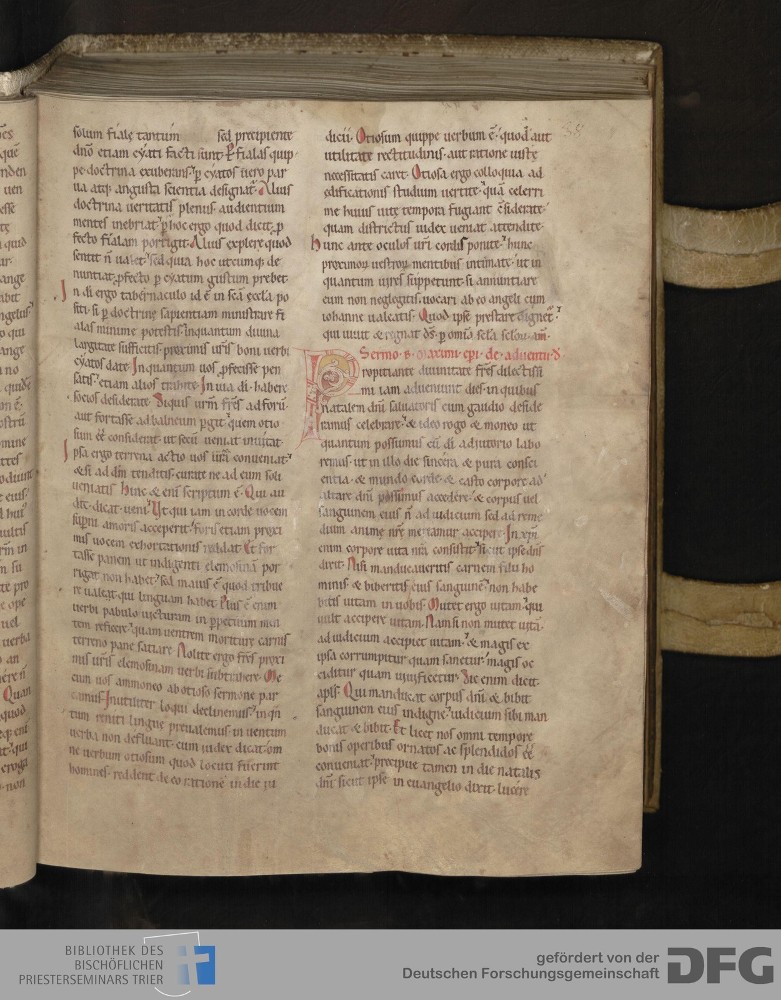 solum fiale tantum sed precipiente
dño etiam cyati facti sunt. P fialas quip
pe doctrina exuberans; p cyatos uero par
ua atq; angusta scientia designat᷑. Alius
doctrina ueritatis plenus audientium
mentes inebriat; p hoc ergo quod dicit; p
fecto fialam porrigit. Alius explere quod
sentit ñ ualet; sed quia hoc utcumq; de
nuntiat; pfecto p cyatum gustum prebet.
In di ergo tabernaculo id ē in scā eccla po
siti. si p doctrinę sapientiam ministrare fi
alas minime potestis; inquantum diuina
largitate sufficitis. proximis uris boni uerbi
cyatos date. Inquantum uos pfecisse pen
satis; etiam alios trahite. In uia di. habere
socios desiderate. Siquis urm frēs ad forū.
aut fortasse ad balneum pgit; quem otio
sum eē considerat. ut secū ueniat inuitat.
Ipsa ergo terrena actio uos uīa conueniat;
& si ad dm tenditis. curate ne ad eum soli
ueniatis. Hinc & eni scriptum ē. Qui au
dit. dicat ueni. Ut qui iam in corde uocem
superni amoris acceperit; foris etiam proxi
mis uocem exhortationis reddat. Et for
tasse panem ut indigenti elemosinā por
rigat. non habet; sed maius ē quod tribue
re ualeat. qui linguam habet. Plus ē enim
uerbi pabulo uicturam in ppetuum men
tem reficere; quam uentrem moriture carnis
terreno pane satiare. Nolite ergo frēs proxi
mis uris elemosinam uerbi subtrahere. Me
cum uos ammoneo. ab otioso sermone par
camus. Inutiliter loqui declinemus; inqñ
tum reniti lingue preualemus. in uentum
uerba non defluant. cum iudex dicat. om
ne uerbum otiosum quod locuti fuerint
homines. reddent de eo rationē in die iu
dicii. Otiosum quippe uerbum ē. quod aut
utilitate rectitudinis. aut ratione iustę
necessitatis caret. Otiosa ergo colloquia ad
edificationis studium uertite; quā celerri
me huius uitę tempora fugiant cōsiderate.
quam districtus iudex ueniat attendite.
Hunc ante oculos uri cordis ponite; hunc
proximoꝝ uestroꝝ mentibus intimate. ut in
quantum uires suppetunt. si annuntiare
eum non neglegitis. uocari ab eo angeli cum
iohanne ualeatis. Quod ipse prestare dignet᷑;
qui uiuit & regnat ds. p omīa secla seclou. am.
Sermo. b. maximi. epi. de. aduentu. d.
Propitiante diuinitate frēs dilectissi
mi iam adueniunt dies. in quibus
natalem dni saluatoris cum gaudio deside
ramus celebrare; & ideo rogo & moneo ut
quantum possumus cū di adiutorio labo
remus. ut in illo die sincera & pura consci
entia. & mundo corde. & casto corpore ad
altare dni possimus accedere. & corpus uel
sanguinem eius ñ ad iudicium sed ad reme
dium anime nrę mereamur accipere. In xpi
enim corpore uita nra consistit; sicut ipse dns
dicit. Nisi manducaueritis carnem filii ho
minis & biberitis eius sanguinē; non habe
bitis uitam in uobis. Mutet ergo uitam; qui
uult accipere uitam. Nam si non mutet uitā.
ad iudicium accipiet uitam. & magis ex
ipsa corrumpitur quam sanetur; magis oc
ciditur quam uiuificetur. Sic enim dicit
apls. Qui manducat corpus dni & bibit
sanguinem eius indigne; iudicium sibi man
ducat & bibit. Et licet nos omni tempore
bonis operibus ornatos ac splendidos eē
conueniat; precipue tamen in die natalis
dni. sicut ipse in euangelio dixit. lucere
BIBLIOTHEK DES
BISCHÖFLICHEN
PRIESTERSEMINARS TRIER
gefördert von der
Deutschen Forschungsgemeinschaft
DFG